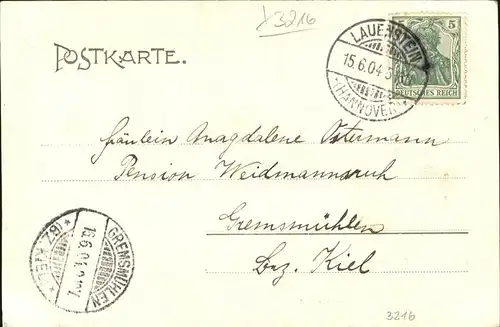 x3216
POSTKARTE.
LAUENSTEIN
15.6.04.
*(HANNOVER)*
5 5
DEUTSCHES REICH
Fräulein Magdalene Ostermann
Pension Weidmannsruh
Gremsmühlen
Bz. Kiel
GREMSMÜHLEN
16.6.04.
*(BZ. KIEL)*
3216